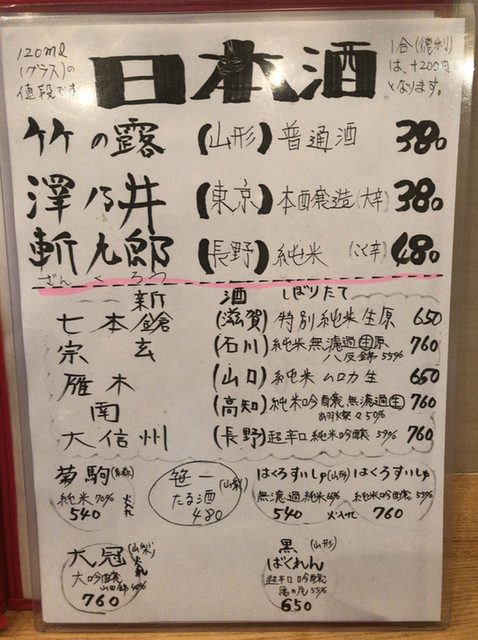 120ml
(グラス)の
値段です
日本酒
1合(徳利)
は、+200円
となります。
竹の露 (山形) 普通酒 380
澤乃井 (東京) 本醸造(大辛) 380
斬九郎 (長野) 純米 (こく辛) 480
ざんくろう
新酒 しぼりたて
七本鎗 (滋賀) 特別純米生原 650
宗玄 (石川) 純米無濾過生原 760
八反錦55%
雁木 (山口) 純米 ムロカ生 650
南 (高知) 純米吟醸無濾過生 760
50%
大信州 (長野) 超辛口純米吟醸 59% 760
菊駒(青森)
純米70% 火入れ
540
笹一(山梨)
たる酒
480
はくろすいしゅ(山形)
無濾過純米
540 火入れ
はくろすいしゅ
純米吟醸55%
760
大冠(山梨)
火入れ
大吟醸
山田錦40%
760
黒(山形)
ばくれん
超辛口吟醸
亀の尾55%
650